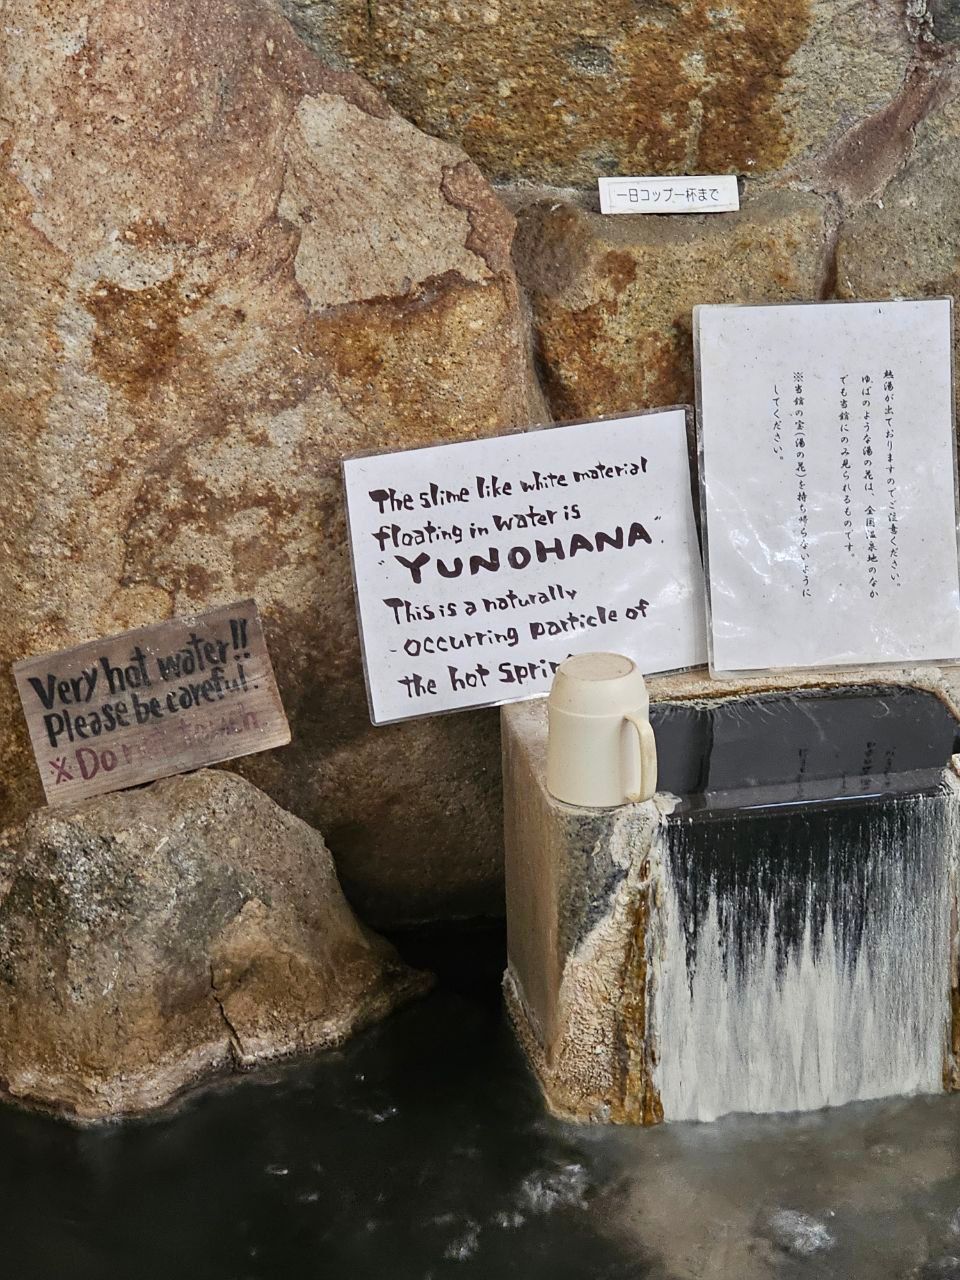 一日コップ一杯まで
熱湯が出ておりますのでご注意ください。
ゆばのような湯の花は、全国温泉地のなか
でも当館にのみ見られるものです。
※当館の宝(湯の花)を持ち帰らないように
してください。
The slime like white material
floating in water is
"YUNOHANA".
This is a naturally
occurring particle of
the hot Sprin
Very hot water!!
Please be careful.
※Do not touch.